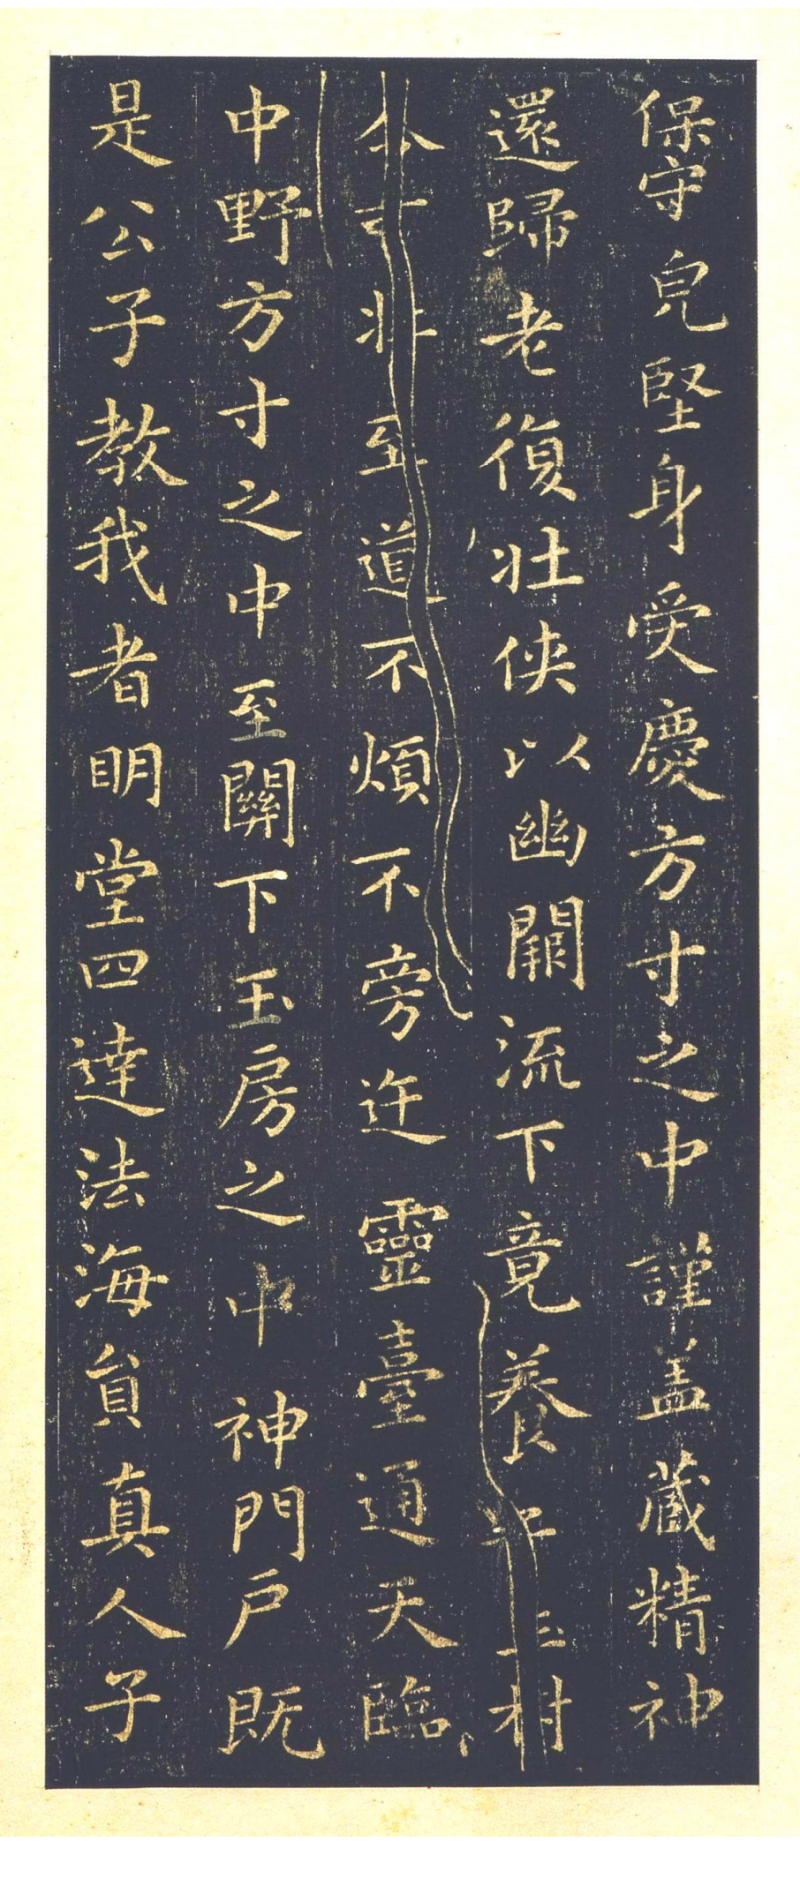 保守皃堅身受慶方寸之中謹盖藏精神
還歸老復壯俠以幽闕流下竟養玉樹
不可杖至道不煩不旁迕靈臺通天臨
中野方寸之中至關下玉房之中神門戶既
是公子教我者明堂四達法海貟真人子